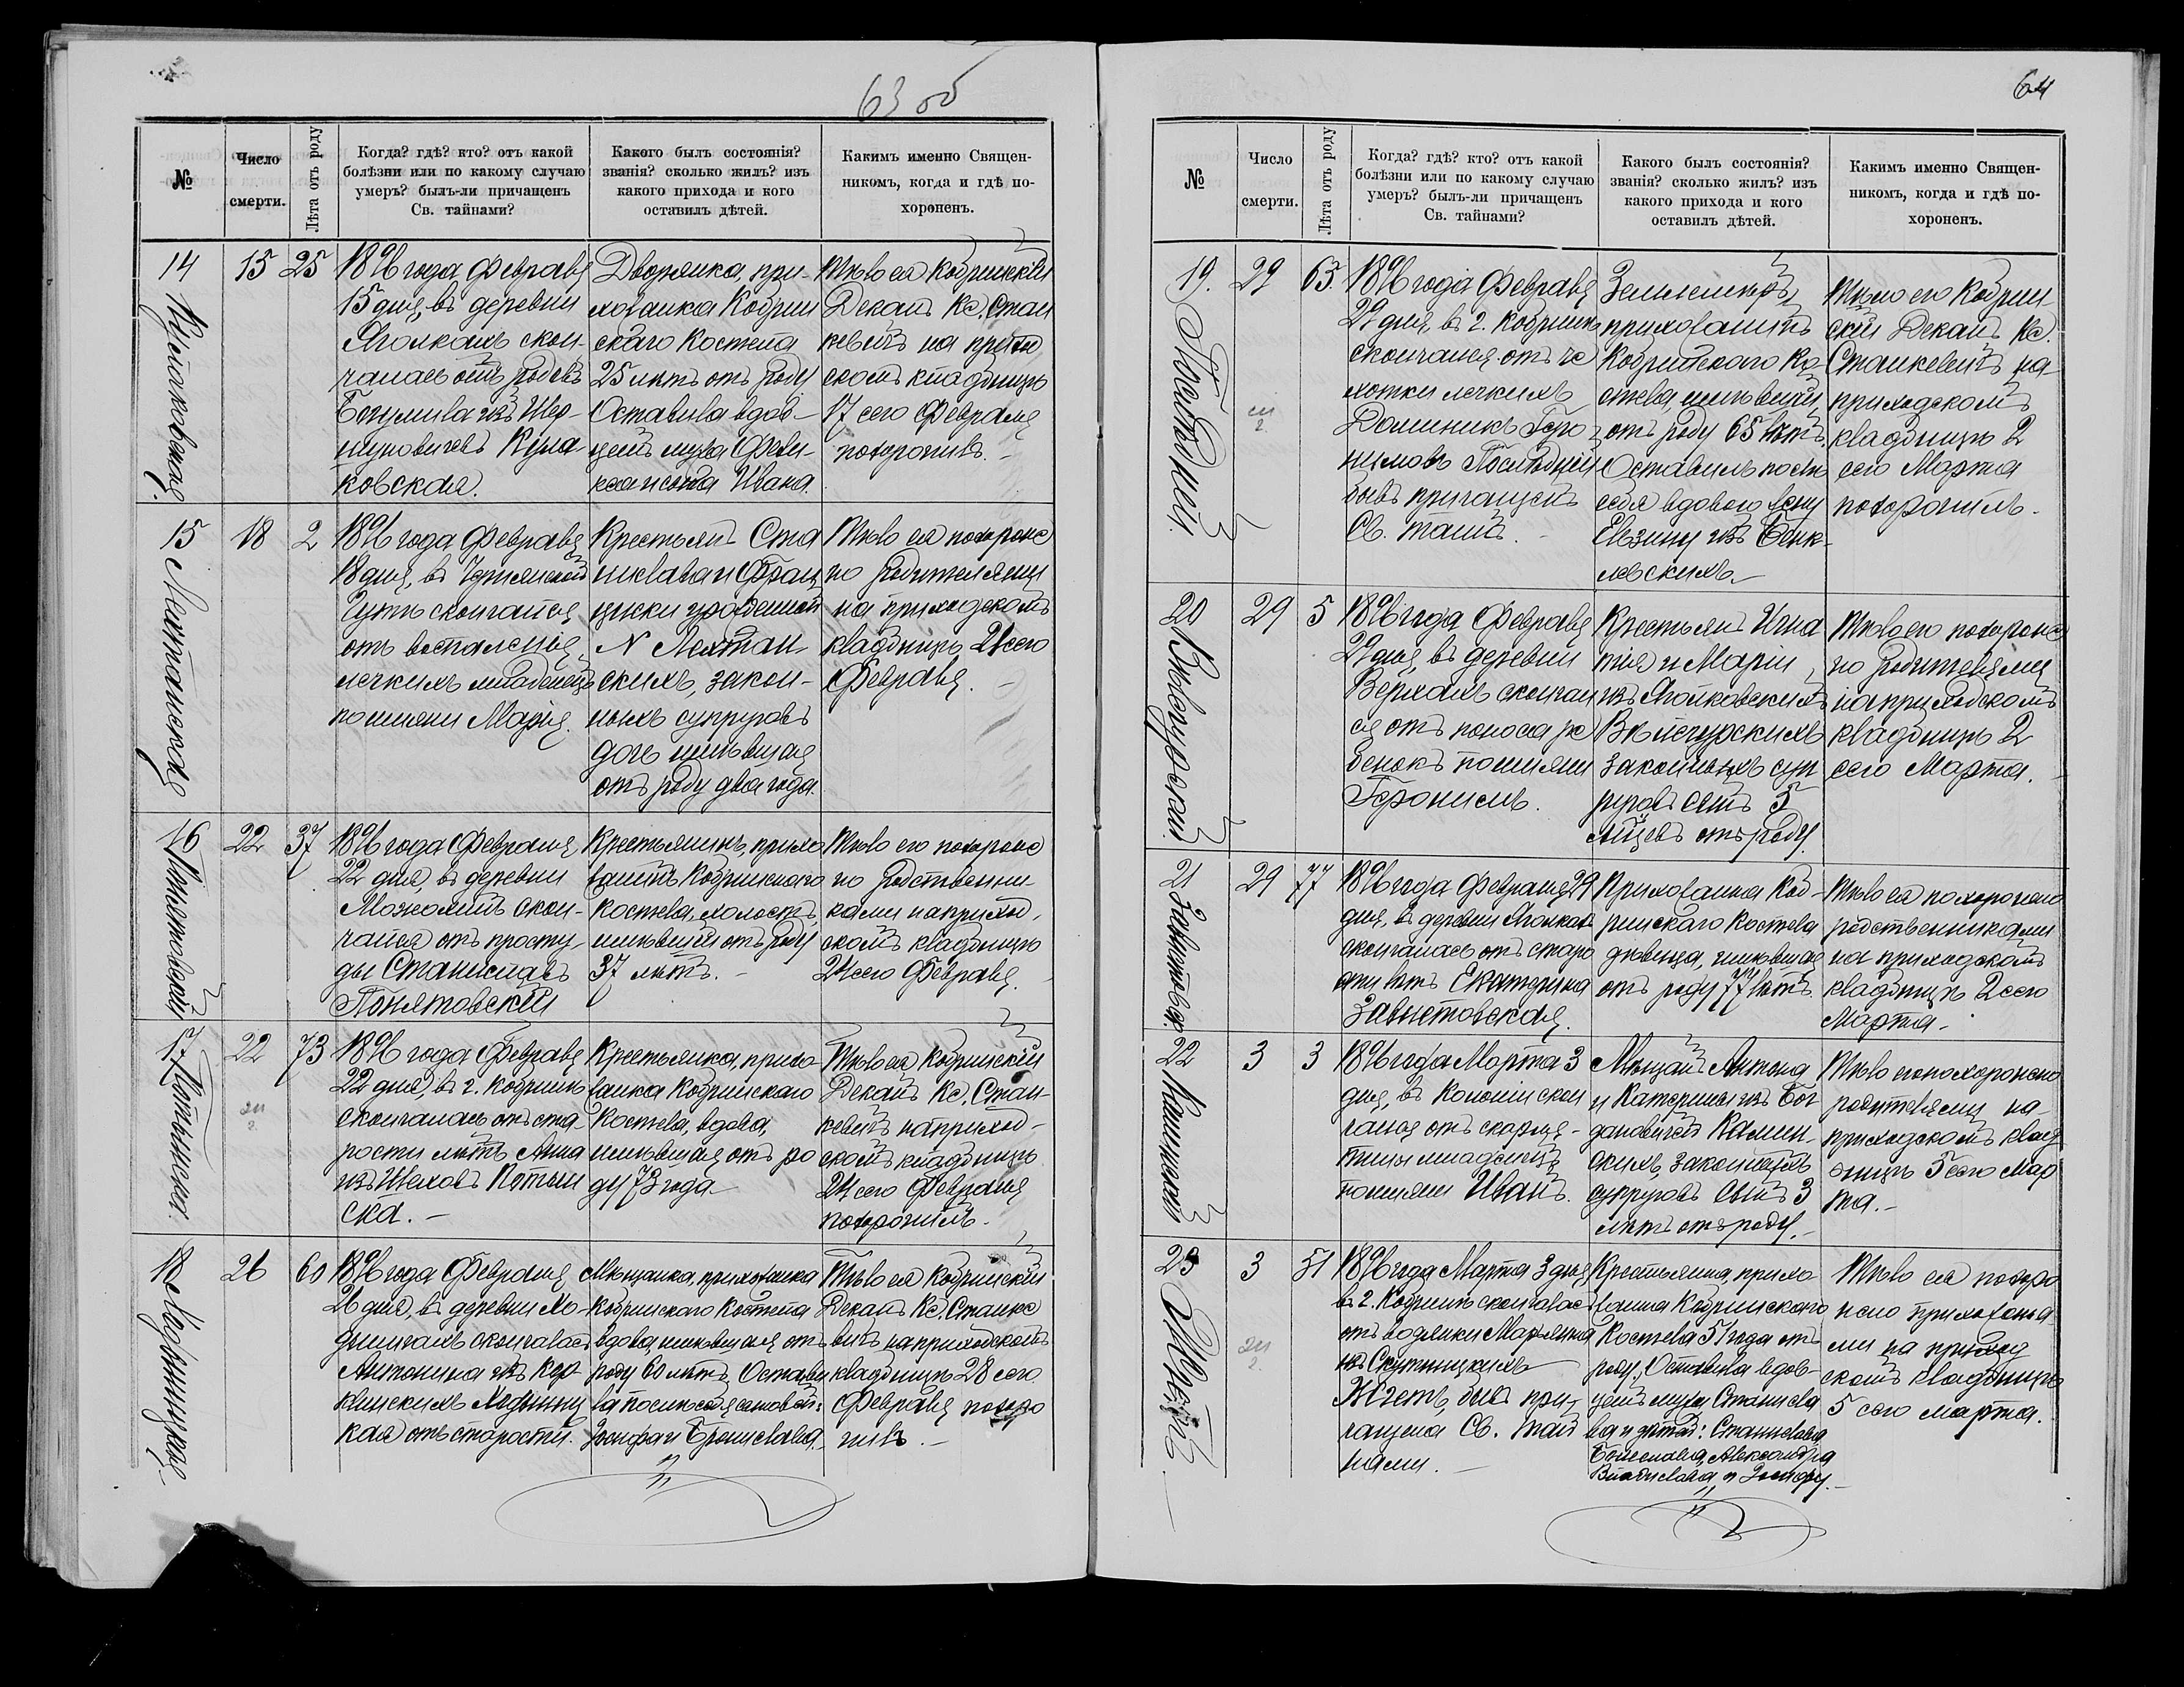 63 об
№
Число
смерти.
Лѣта отъ роду
Когда? гдѣ? кто? отъ какой
болѣзни или по какому случаю
умеръ? былъ-ли причащенъ
Св. тайнами?
Какого былъ состоянія?
званія? сколько жилъ? изъ
какого прихода и кого
оставилъ дѣтей.
Какимъ именно Священ-
никомъ, когда и гдѣ по-
хороненъ.
14
15
25
1896 года Февраля
15 дня, въ деревни
Яголкахъ скон-
чалась отъ родовъ
Богумила изъ
ковская.
Дворянка, при-
хожанка Кобрин
скаго Костела
25 лѣтъ отъ роду
Оставила вдов-
цемъ мужа Фели-
Ивана.
Тѣло ея Кобринскій
Деканъ Кс. Стан
кевичъ на приход
скомъ кладбищѣ
17 сего Февраля
похоронилъ.
15
Лехтанская
18
2
1896 года Февраля
18 дня, въ
скончался
отъ воспаленія
легкихъ младенецъ
по имени Марія.
Крестьянъ Ста
нислава и Фран
циски урожденной
N Лехтан
скихъ, закон-
ныхъ супруговъ
дочь имѣвшая
отъ роду два года.
Тѣло ея похороне
но родителями
на приходскомъ
кладбищѣ 21 сего
Февраля.
16
Понятовскій
22
37
1896 года Февраля
22 дня, въ деревни
скон-
чался отъ просту-
ды Станиславъ
Понятовскій
Крестьянинъ, прихо
жанинъ Кобринскаго
Костела, холостъ,
имѣвшій отъ роду
37 лѣтъ. -
Тѣло его похороне
но родственни-
ками на приход
скомъ кладбищѣ
24 сего Февраля.
17
22
73
1896 года Февраля
22 дня, въ г. Кобринѣ
скончалась отъ ста
рости лѣтъ Анна
изъ
ска. -
Крестьянка, прихо
жанка Кобринскаго
Костела, вдова,
имѣвшая отъ ро
ду 73 года
Тѣло ея Кобринскій
Деканъ Кс. Стан-
кевичъ на приход-
скомъ кладбищѣ
24 сего Февраля
похоронилъ.
18
26
60
1896 года Февраля
26 дня, въ деревни Хо-
скончалась
Антонина изъ
кая отъ старости.
Мѣщанка, прихожанка
Кобринскаго Костела
вдова, имѣвшая отъ
роду 60 лѣтъ, Остави
ла послѣ себя сыновей:
Іосифа и Бронислава.
Тѣло ея Кобринскій
Деканъ Кс. Станке
вичъ на приходскомъ
кладбищѣ 28 сего
Февраля похоро
нилъ. -
64
№
Число
смерти.
Лѣта отъ роду
Когда? гдѣ? кто? отъ какой
болѣзни или по какому случаю
умеръ? былъ-ли причащенъ
Св. тайнами?
Какого былъ состоянія?
званія? сколько жилъ? изъ
какого прихода и кого
оставилъ дѣтей.
Какимъ именно Священ-
никомъ, когда и гдѣ по-
хороненъ.
19.
Послѣдній.
29
65
1896 года Февраля
29 дня, въ г. Кобринѣ
скончался отъ ча
хотки легкихъ
Доминикъ Геро
нимовъ Послѣдній
бывъ причащенъ
Св. таинъ.
Землемѣръ,
прихожанинъ
Кобринскаго Ко-
стела, имѣвшій
отъ роду 65 лѣтъ.
Оставилъ послѣ
себя вдовою жену
Евзину изъ
левскихъ.
Тѣло его Кобрин
скій Деканъ Кс.
Станкевичъ на
приходскомъ
кладбищѣ 2
сего Марта
похоронилъ.
20
29
5
1896 года Февраля
29 дня, въ деревни
Верхахъ скончал
ся отъ поноса ре
бенокъ по имени
Геронимъ.
Крестьянъ Игна
тія и Маріи
изъ Яголковскихъ
законныхъ суп
руговъ сынъ 5
мѣсяцевъ отъ роду
Тѣло его похороне
но родителями
на приходскомъ
кладбищѣ 2
сего Марта.
21
29
77
1896 года Февраля 29
дня, въ деревни Яголках
скончалась отъ старо
сти лѣтъ Екатерина
Завистовская.
Прихожанка Коб-
ринскаго Костела
дѣвица, имѣвшая
отъ роду 77 лѣтъ.
Тѣло ея похоронено
родственниками
на приходскомъ
кладбищѣ 2 сего
Марта.
22
Каминскій
3
3
1896 года Марта 3
дня, въ Колоніи скон
чался отъ скарла-
тины младенецъ
по имени Иванъ.
Мѣщанъ Антона
и Катерины изъ Бог
дановичей Камин-
скихъ, законныхъ
супруговъ сынъ 3
лѣтъ отъ роду.
Тѣло его похоронено
родителями на
приходскомъ клад
бищѣ 5 сего Мар
та. -
23
3
51
1896 года Марта 3 дня
въ г. Кобринѣ скончалась
отъ водянки Марьянна
изъ
бывъ при-
чащена Св. Тай
нами. -
Крестьянка, прихо
жанка Кобринскаго
Костела 51 года отъ
роду. Оставила вдов-
цемъ мужа Станисла
ва и дѣтей: Станислава,
Болеслава, Александра
Владислава и
Тѣло ея похоро
нено прихожана
ми на приход
скомъ кладбищѣ
5 сего марта.